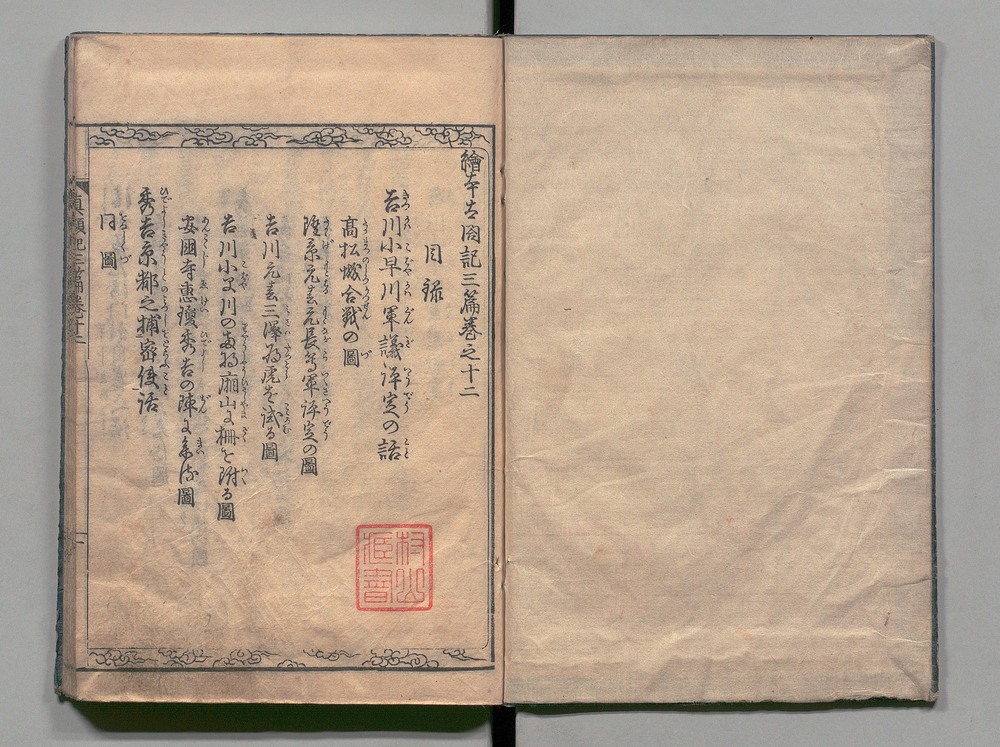 繪本太閤記三篇巻之十二
目録
吉川小早川軍議評定の話
高松城合戦の圖
隆景元春元長等軍評定の圖
吉川元春三澤為虎を試る圖
吉川小早川の両将廂山に柵を附る圖
安國寺惠瓊秀吉の陣に来る圖
秀吉京都之捕密使話
同圖
真顕記三篇巻十二
村山
蔵書